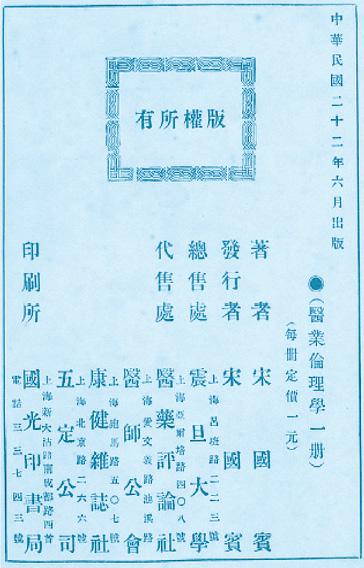 中華民國二十二年六月出版
●(醫業倫理學一册)
(每册定價一元)
版權所有
著者 宋國賓
發行者 宋國賓
總售處 震旦大學
上海呂班路二二三號
代售處 醫藥評論社
上海亞爾培路四〇八號
醫師公會
上海愛文義路池浜路
康健維誌社
上海跑馬路五〇七號
五定公司
上海北京路二六六號
印刷所 國光印書局
上海新大沽路南成都路西首
電話三三七四三號